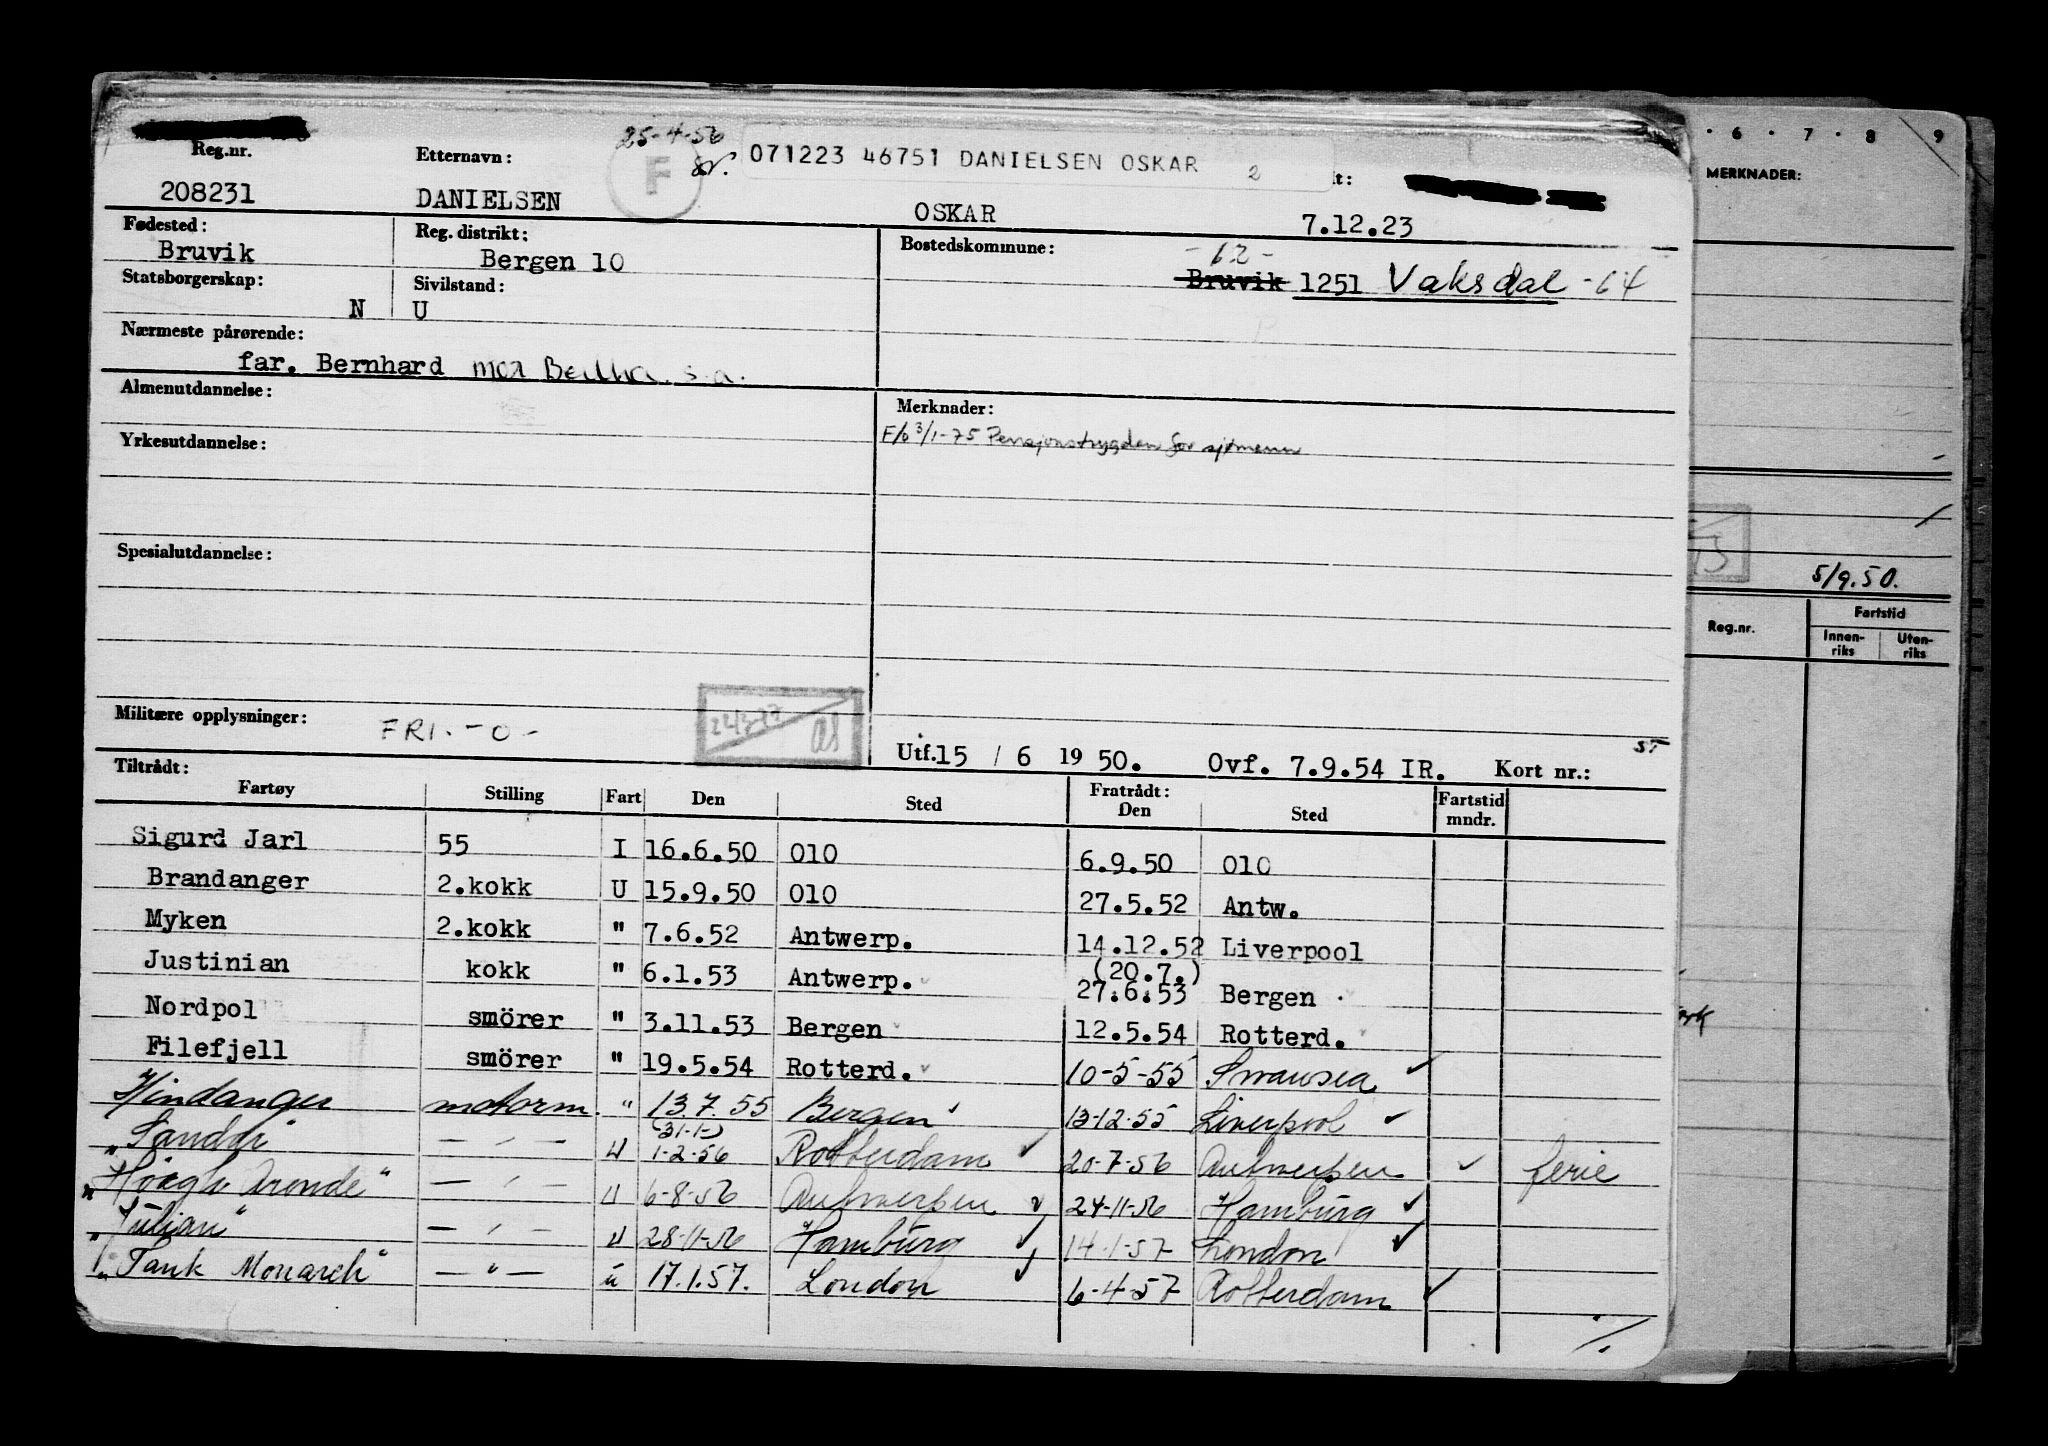 25-4-56
F
071223 46751 DANIELSEN OSKAR 2
Reg.nr. Etternavn: t:
208231 DANIELSEN OSKAR 7.12.23
Fødested: Reg. distrikt: Bostedskommune:
Bruvik Bergen 10 -62-
Bruvik 1251 Vaksdal -64
Statsborgerskap: Sivilstand:
N U
Nærmeste pårørende:
far. Bernhard mor Bertha s.a.
Almenutdannelse: Merknader:
F/b 3/1-75 Pensjonstrygden for sjømenn
Yrkesutdannelse:
Spesialutdannelse:
Militære opplysninger: FRI.-0-
Utf. 15 / 6 19 50. Ovf. 7.9.54 IR. Kort nr.: ST
Tiltrådt: Fratrådt:
Fartøy Stilling Fart Den Sted Den Sted Fartstid mndr.
Sigurd Jarl 55 I 16.6.50 010 6.9.50 010
Brandanger 2.kokk U 15.9.50 010 27.5.52 Antw.
Myken 2.kokk " 7.6.52 Antwerp. 14.12.52 Liverpool
(20.7.)
Justinian kokk " 6.1.53 Antwerp. 27.6.53 Bergen
Nordpol smörer " 3.11.53 Bergen 12.5.54 Rotterd.
Filefjell smörer " 19.5.54 Rotterd. 10-5-55 Swansea
Hindanger motorm. " 13.7.55 Bergen 13-12-55 Liverpool
(31-1-)
"Sandar" — " — U 1-2-56 Rotterdam 20-7-56 Antwerpen ferie
"Höegh Aronde" — " — U 6-8-56 Antwerpen 24-11-56 Hamburg
"Julian" — " — U 28-11-56 Hamburg 14-1-57 London
"Tank Monarch" — " — u 17.1.57. London 6-4-57 Rotterdam
%.
6 . 7 . 8 9
MERKNADER:
5/9.50.
Reg.nr. Fartstid
Innen-riks Uten-riks